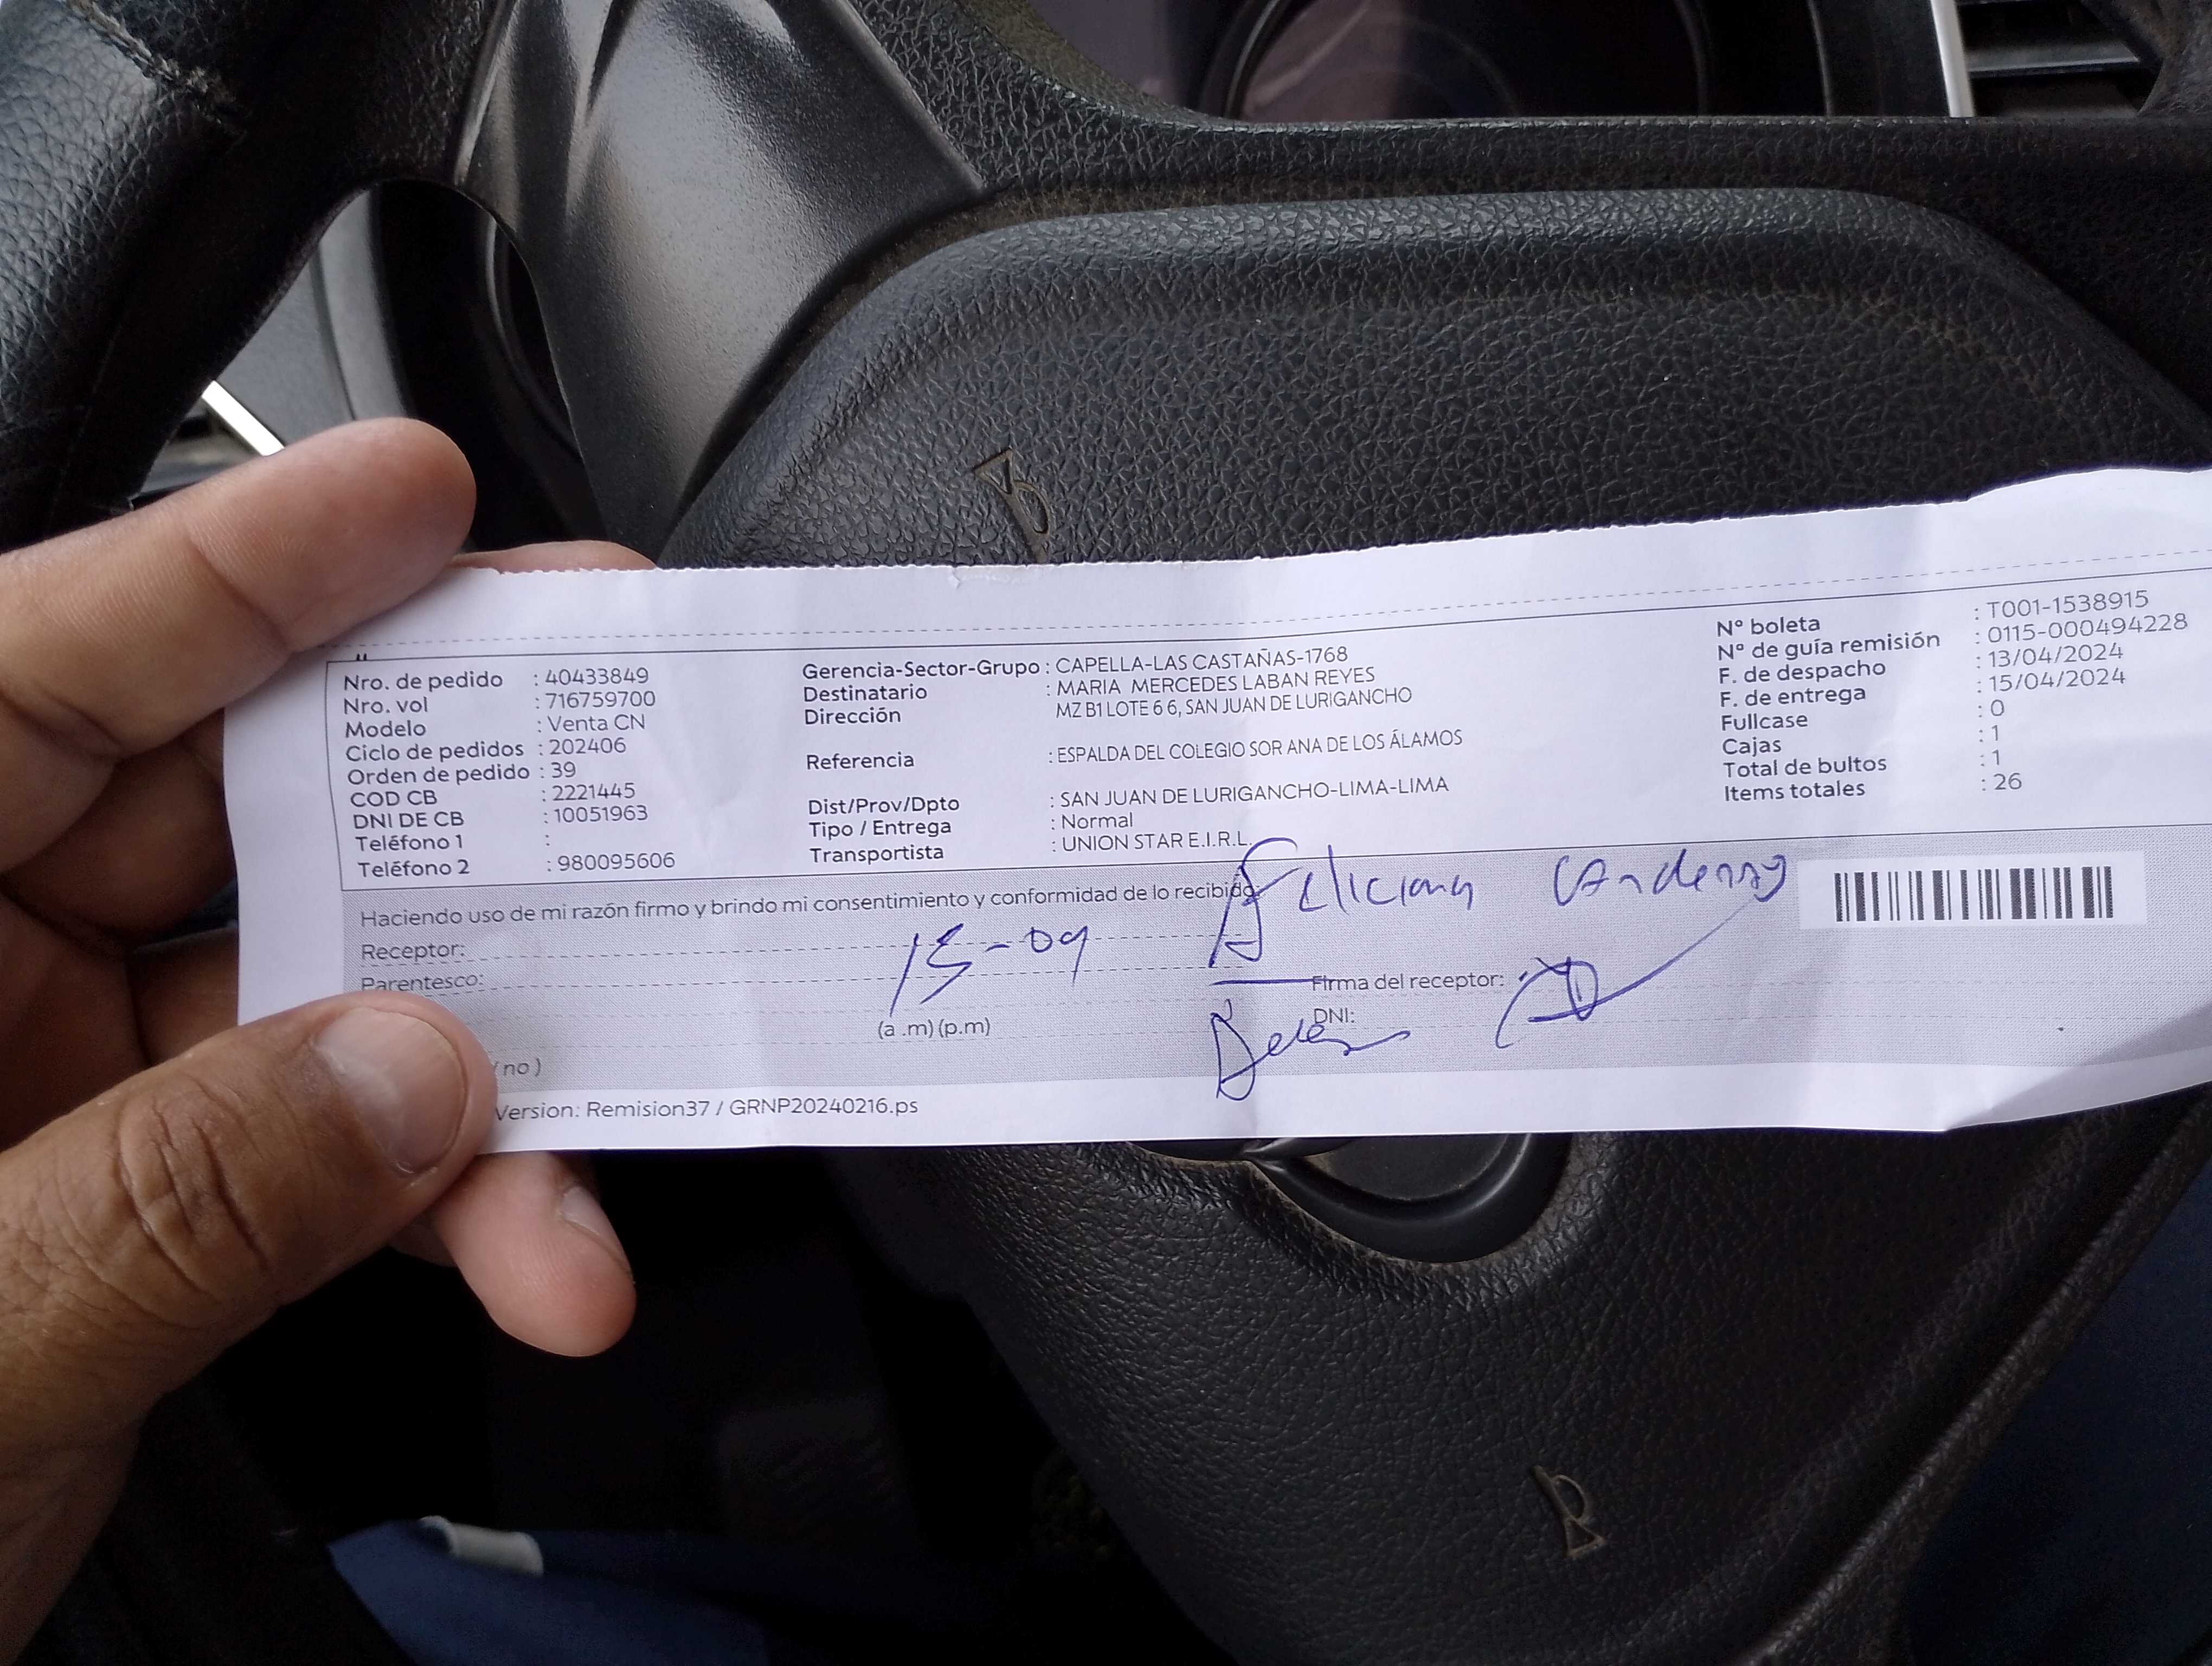 Nro. de pedido : 40433849
Nro. vol : 716759700
Modelo : Venta CN
Ciclo de pedidos : 202406
Orden de pedido : 39
COD CB : 2221445
DNI DE CB : 10051963
Teléfono 1 :
Teléfono 2 : 980095606
Gerencia-Sector-Grupo : CAPELLA-LAS CASTAÑAS-1768
Destinatario : MARIA MERCEDES LABAN REYES
Dirección MZ B1 LOTE 6 6, SAN JUAN DE LURIGANCHO
Referencia : ESPALDA DEL COLEGIO SOR ANA DE LOS ÁLAMOS
Dist/Prov/Dpto : SAN JUAN DE LURIGANCHO-LIMA-LIMA
Tipo / Entrega : Normal
Transportista : UNION STAR E.I.R.L.
N° boleta : T001-1538915
N° de guía remisión : 0115-000494228
F. de despacho : 13/04/2024
F. de entrega : 15/04/2024
Fullcase : 0
Cajas : 1
Total de bultos : 1
Items totales : 26
Haciendo uso de mi razón firmo y brindo mi consentimiento y conformidad de lo recibido.
Receptor:
15-04
Parentesco:
Firma del receptor:
(a .m) (p.m)
DNI:
( no )
Version: Remision37 / GRNP20240216.ps